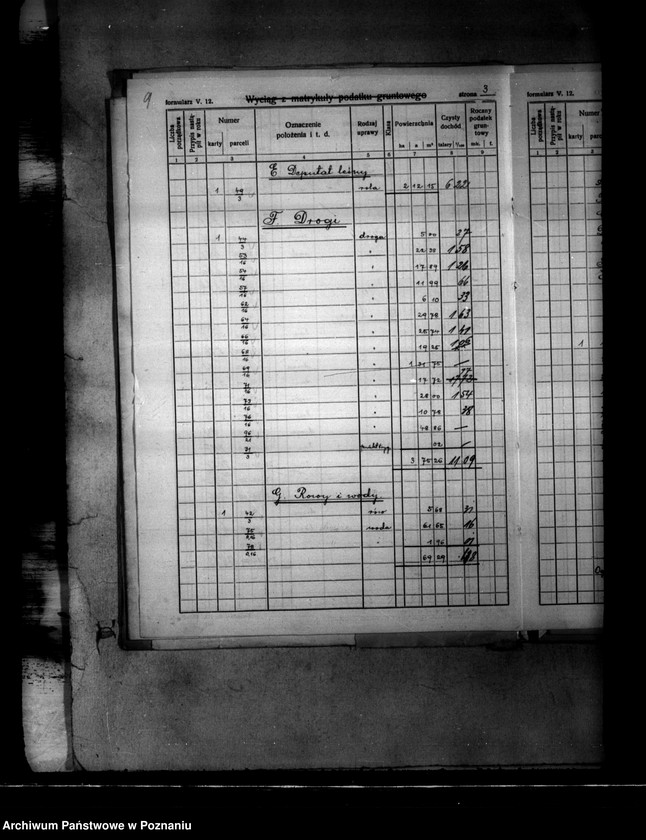 9
formularz V. 12.
Wyciąg z matrykuły podatku gruntowego
strona 3
formularz V. 12.
Liczba porządkowa
Przypis nastąpił w roku
Numer
karty
parceli
Oznaczenie położenia i t. d.
Rodzaj uprawy
Klasa
Powierzchnia
ha a m²
Czysty dochód
talary 1/100
Roczny podatek gruntowy
mk. f.
1 2 3 4 5 6 7 8 9
E Deputat leśny
1 49/3 rola 2 12 15 6 22
F Drogi
1 44/3 droga 5 00 27
53/16 " 22 30 1 58
54/16 " 17 89 1 26
57/16 " 11 99 66
62/16 " 6 10 33
64/16 " 29 78 1 63
66/16 " 25 74 1 41
68/16 " 19 25
69/16 " 1 31 75 —
71/16 " 17 72
73/16 " 28 00 1 54
76/16 " 10 78 38
96/21 " 48 86 —
71/3 02 —
3 75 26 11 09
G. Rowy i wody
1 42/3 rów 5 68 31
75/216 woda 61 65 16
78/216 " 1 96 01
69 29 48
Liczba porządkowa
Przypis nastąpił w roku
Numer
karty
1 2
1
Archiwum Państwowe w Poznaniu